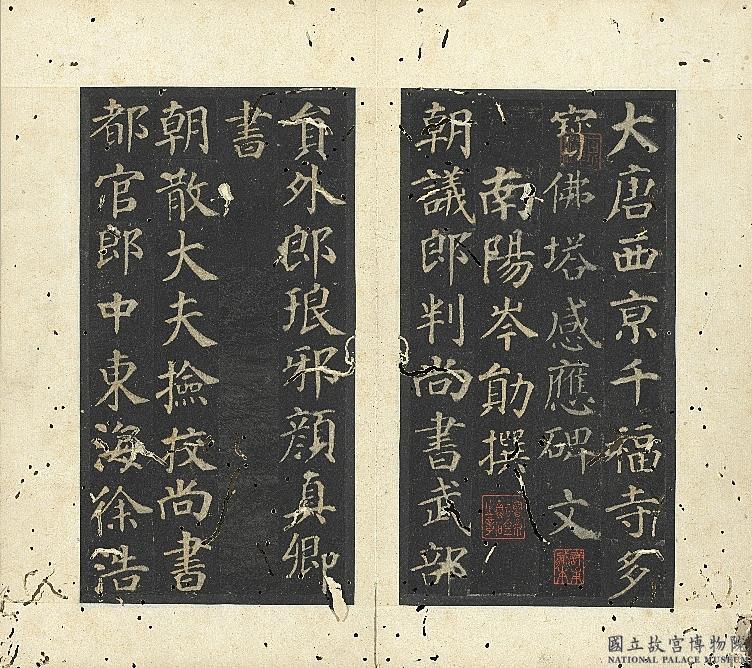 大唐西京千福寺多
寶佛塔感應碑文
南陽岑勛撰
朝議郎判尚書武部
貟外郎琅邪顏真卿
書
朝散大夫撿挍尚書
都官郎中東海徐浩
國立故宮博物院
NATIONAL PALACE MUSEUM